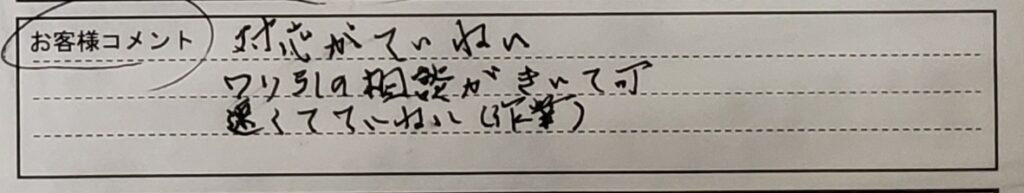 お客様コメント 対応がていねい
ワリ引の相談がきいて可
速くてていねい(作業)